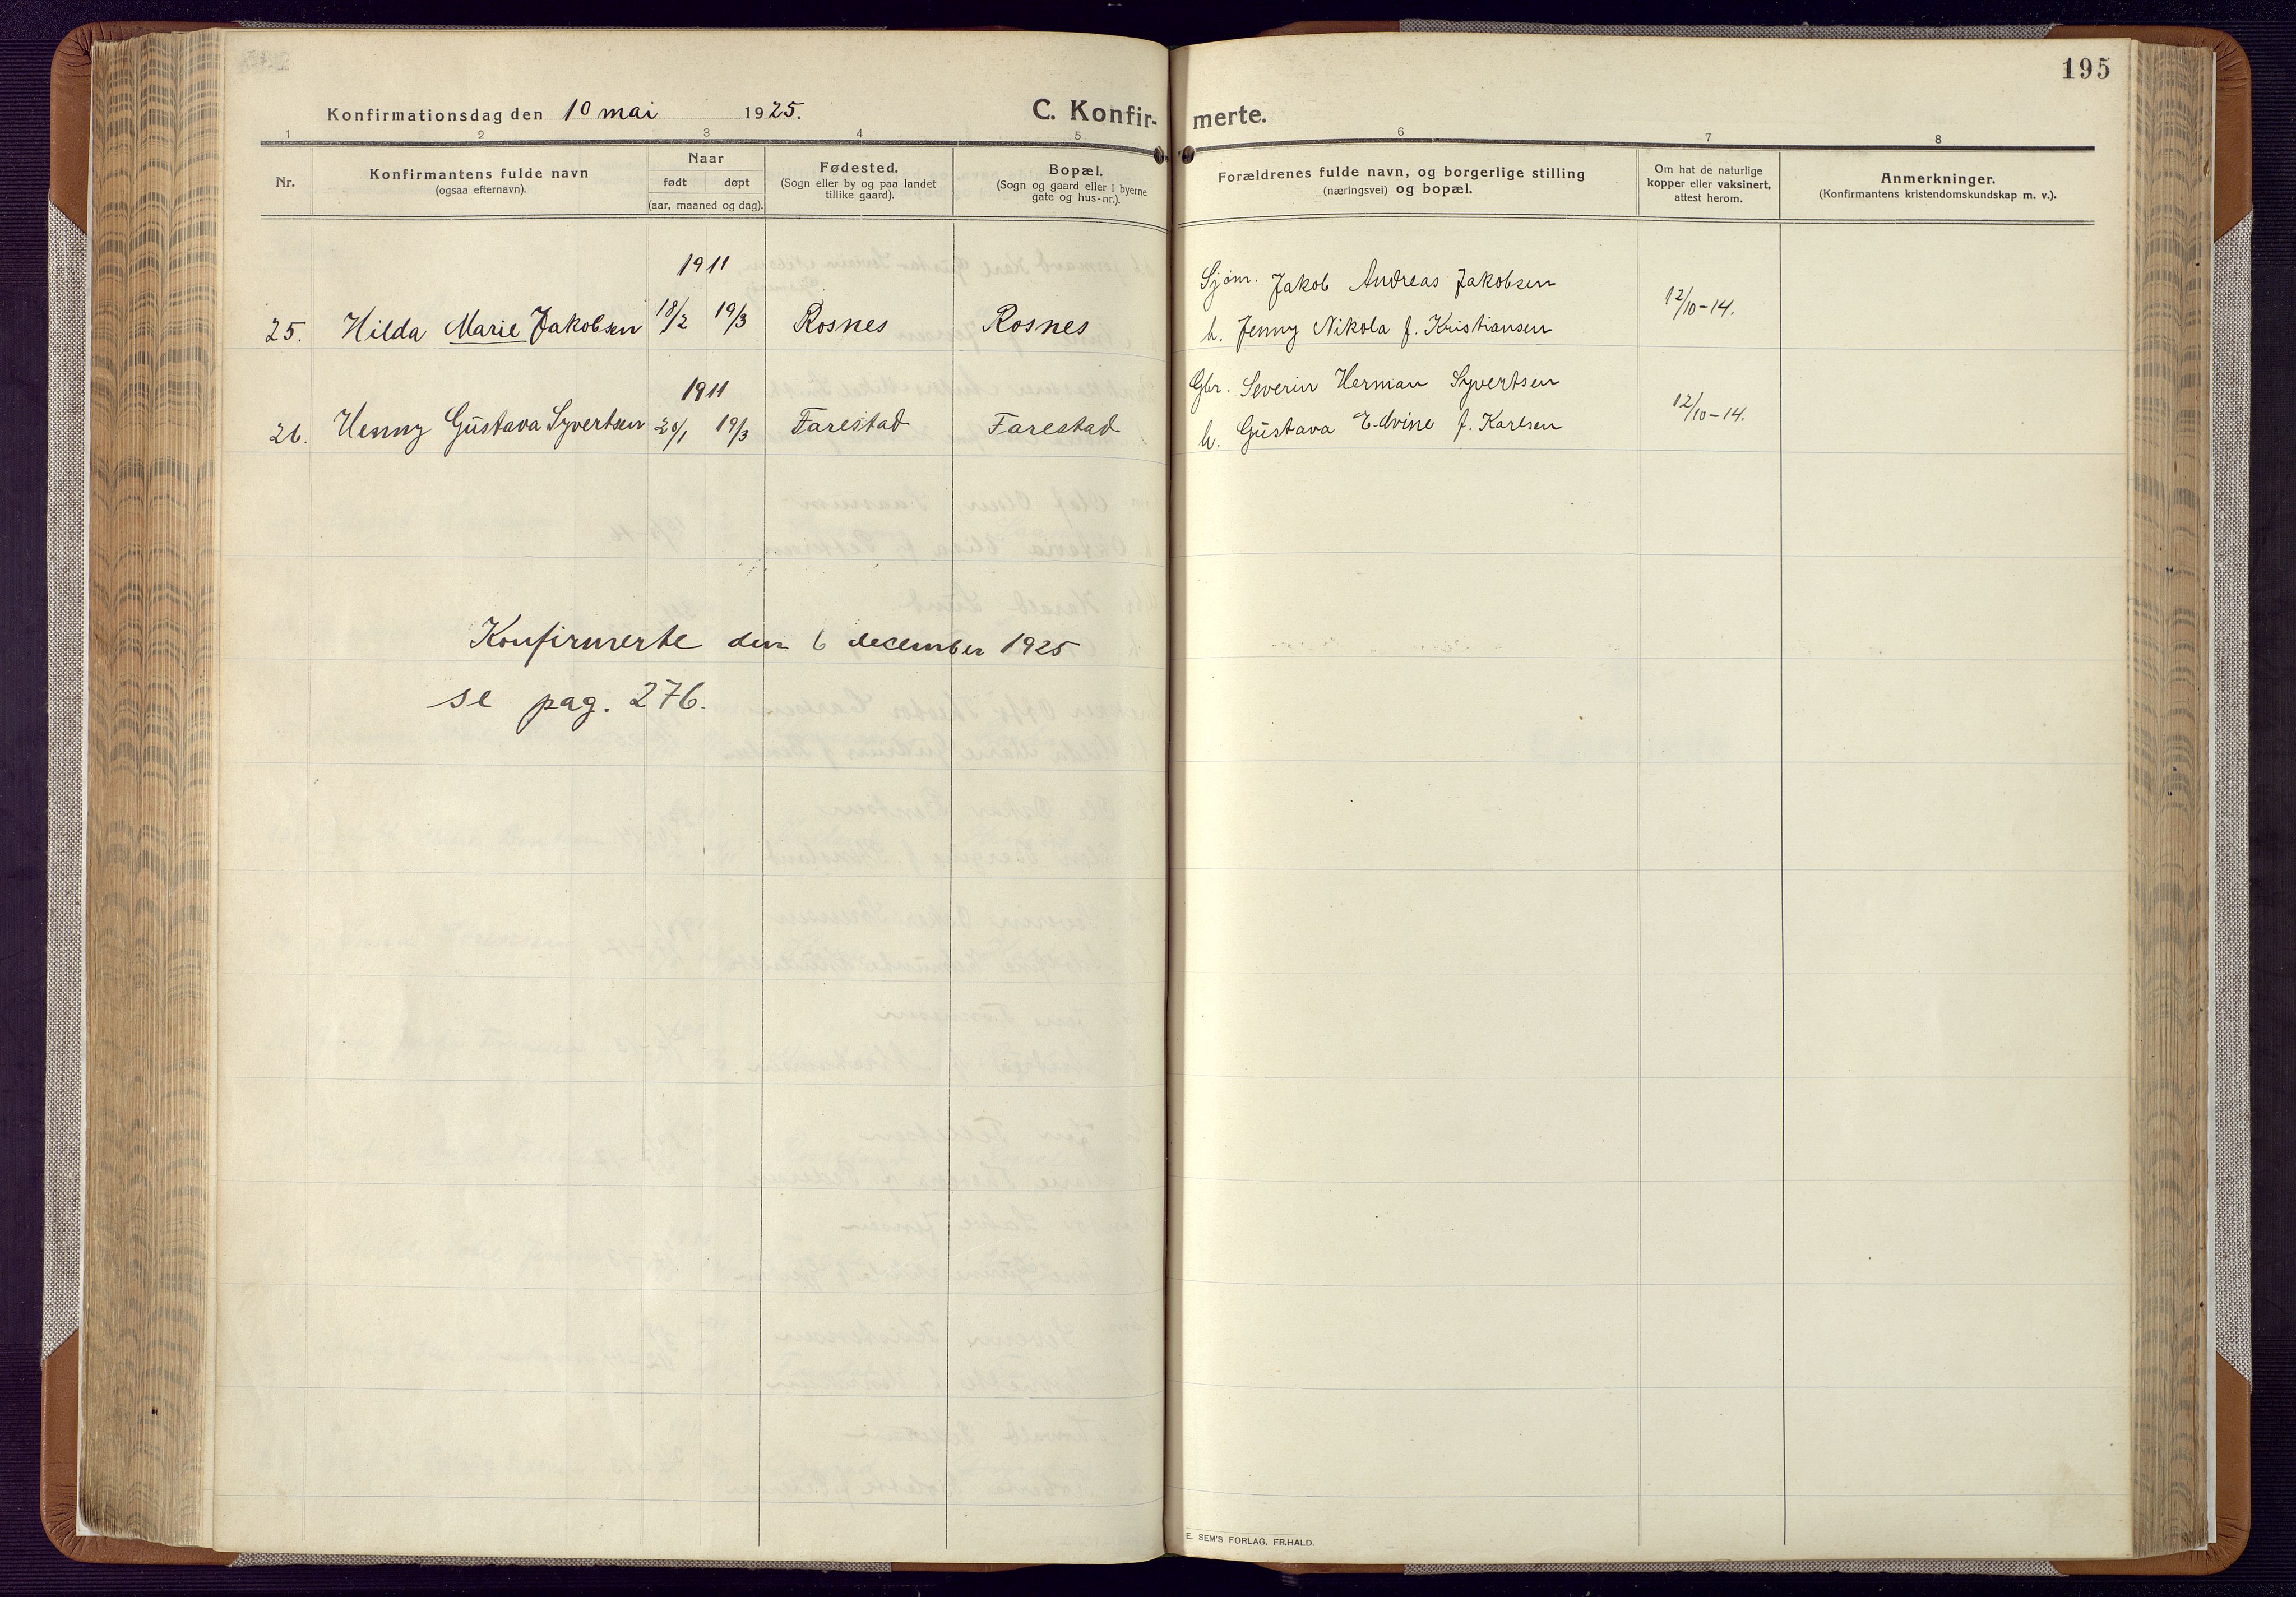 195
Konfirmationsdag den 10 mai 1925.
C. Konfir- merte.
1 2 3 4 5 6 7 8
Nr.
Konfirmantens fulde navn
(ogsaa efternavn).
Naar
født døpt
(aar, maaned og dag).
Fødested.
(Sogn eller by og paa landet
tillike gaard).
Bopæl.
(Sogn og gaard eller i byerne
gate og hus-nr.).
Forældrenes fulde navn, og borgerlige stilling
(næringsvei) og bopæl.
Om hat de naturlige
kopper eller vaksinert,
attest herom.
Anmerkninger.
(Konfirmantens kristendomskundskap m. v.).
1911
Sjøm. Jakob Andreas Jakobsen
25. Hilda Marie Jakobsen 18/2 19/3 Rosnes Rosnes
h. Jenny Nikola f. Kristiansen
12/10-14.
1911
Gbr. Severin Herman Syvertsen
26. Henny Gustava Syvertsen 20/1 19/3 Farestad Farestad
h. Gustava Edvine f. Karlsen
12/10-14.
Konfirmerte den 6 december 1925
se pag. 276.
E. SEM'S FORLAG, FR.HALD.